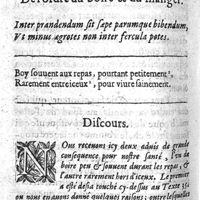 Desordre du boire & du manger.
Inter prandendum sit sæpe parumque bibendum,
Vt minus agrotes non inter fercula potes.
Boy souuent aux repas, pourtant petitement,
Rarement entreieux, pour viure sainement.
Discours.
NOus receuons icy deux aduis de grande
consequence pour nostre santé, l'vn de
boire peu & souuent durant les repas, &
l'autre rarement hors d'iceux. Le premier
a esté desia touché cy-dessus au Texte
on nous en auons donné quelques raisons; outre lesquelles